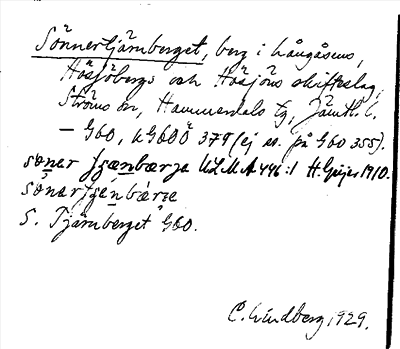 Sönnertjärnberget, berg i Långåsens,
Hösjöbergs och Hösjöns skifteslag,
Ströms sn, Hammerdals tg, Jämtl. l.
— G60, LG60Ö 379 (ej ss. på G60 355).
sønar ʃzænbærja ULMA 446:1 H. Geijer 1910.
sønarʃzænbærje
S. Tjärnberget G60.
C. Lindberg 1929.